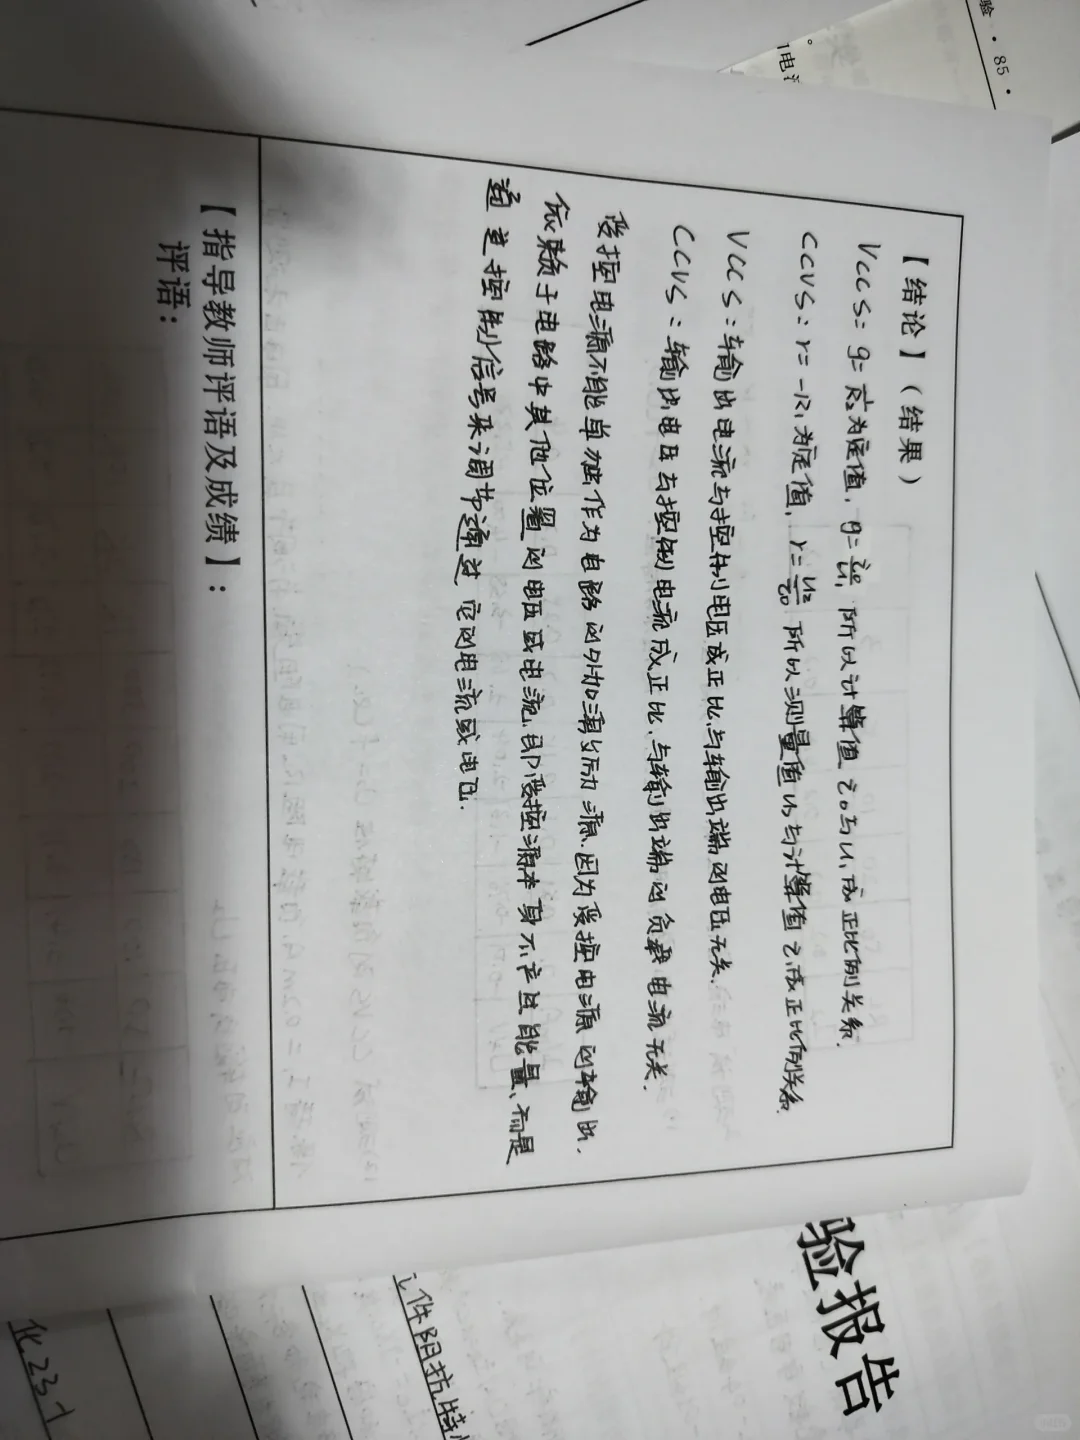 【结论】（结果）
VCCS：g=1/R2为定值，g=i0/u1 所以计算值i0与u1成正比例关系.
CCVS：r=-R1为定值，r=u2/i0 所以测量值u2与计算值i1成正比例关系.
VCCS：输出电流与控制电压成正比,与输出端的电压无关.
CCVS：输出电压与控制电流成正比,与输出端的负载电流无关.
受控电源不能单独作为电路的外加激励源.因为受控电源的输出.
依赖于电路中其他位置的电压或电流,即受控源本身不产生能量、而是
通过控制信号来调节通过它的电流或电压.
【指导教师评语及成绩】：
评语：
验报告
件阻抗特
化23-1
验 · 85 ·